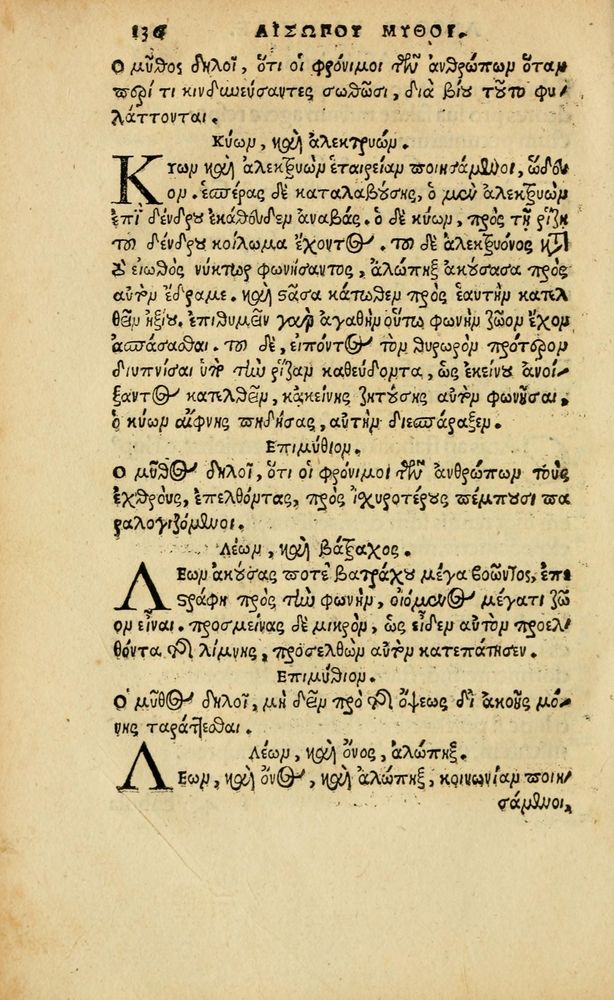 136 ΑΙΣΩΠΟΥ ΜΥΘΟΙ.
Ο μῦθος δηλοῖ, ὅτι οἱ φρόνιμοι τῶν ἀνθρώπων ὅταν
περί τι κινδυνεύσαντες σωθῶσι, διὰ βίου τοῦτο φυ-
λάττονται.
Κύων, καὶ ἀλεκτρυών.
Κύων καὶ ἀλεκτρυὼν ἑταιρείαν ποιησάμενοι, ὥδευ-
ον. ἑσπέρας δὲ καταλαβούσης, ὁ μὲν ἀλεκτρυὼν
ἐπὶ δένδρου ἐκάθευδεν ἀναβάς. ὁ δὲ κύων, πρὸς τῇ ῥίζῃ
τοῦ δένδρου κοίλωμα ἔχοντος. τοῦ δὲ ἀλεκτρυόνος κατὰ
τὸ εἰωθὸς νύκτωρ φωνήσαντος, ἀλώπηξ ἀκούσασα πρὸς
αὐτὸν ἔδραμε. καὶ στᾶσα κάτωθεν πρὸς ἑαυτὴν κατελ-
θεῖν ἠξίου. ἐπιθυμεῖν γὰρ ἀγαθὴν οὕτω φωνὴν ζῶον ἔχον
ἀσπάσασθαι. τοῦ δὲ, εἰπόντος τὸν θυρωρὸν πρότερον
διυπνίσαι ὑπὸ τὴν ῥίζαν καθεύδοντα, ὡς ἐκείνου ἀνοί-
ξαντος κατελθεῖν, κἀκείνης ζητούσης αὐτὸν φωνῆσαι.
ὁ κύων αἴφνης πηδήσας, αὐτὴν διεσπάραξεν.
Επιμύθιον.
Ο μῦθος δηλοῖ, ὅτι οἱ φρόνιμοι τῶν ἀνθρώπων τοὺς
ἐχθροὺς, ἐπελθόντας, πρὸς ἰσχυροτέρους πέμπουσι πα
ραλογιζόμενοι.
Λέων, καὶ βάτραχος.
Λέων ἀκούσας ποτὲ βατράχου μέγα βοῶντος, ἐπε
στράφη πρὸς τὴν φωνὴν, οἰόμενος μέγα τι ζῶ
ον εἶναι. προσμείνας δὲ μικρὸν, ὡς εἶδεν αὐτὸν προελ-
θόντα τῆς λίμνης, προσελθὼν αὐτὸν κατεπάτησεν.
Επιμύθιον.
Ο μῦθος δηλοῖ, μὴ δεῖν πρὸ τῆς ὄψεως δι ἀκοῆς μό-
νης ταράττεσθαι.
Λέων, καὶ ὄνος, ἀλώπηξ.
Λέων, καὶ ὄνος, καὶ ἀλώπηξ, κοινωνίαν ποιη-
σάμενοι,